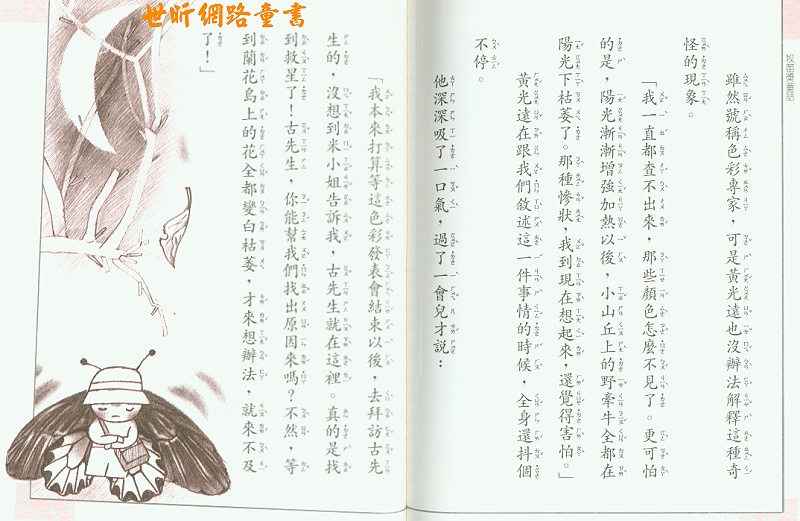 世昕網路童書
牧笛獎童話
雖然號稱色彩專家，可是黃光遠也沒辦法解釋這種奇
怪的現象。
「我一直都查不出來，那些顏色怎麼不見了。更可怕
的是，陽光漸漸增強加熱以後，小山丘上的野牽牛全都在
陽光下枯萎了。那種慘狀，我到現在想起來，還覺得害怕。」
黃光遠在跟我們敘述這一件事情的時候，全身還抖個
不停。
他深深吸了一口氣，過了一會兒才說：
「我本來打算等這色彩發表會結束以後，去拜訪古先
生的，沒想到米小姐告訴我，古先生就在這裡。真的是找
到救星了！古先生，你能幫我們找出原因來嗎？不然，等
到蘭花島上的花全都變白枯萎，才來想辦法，就來不及
了！」